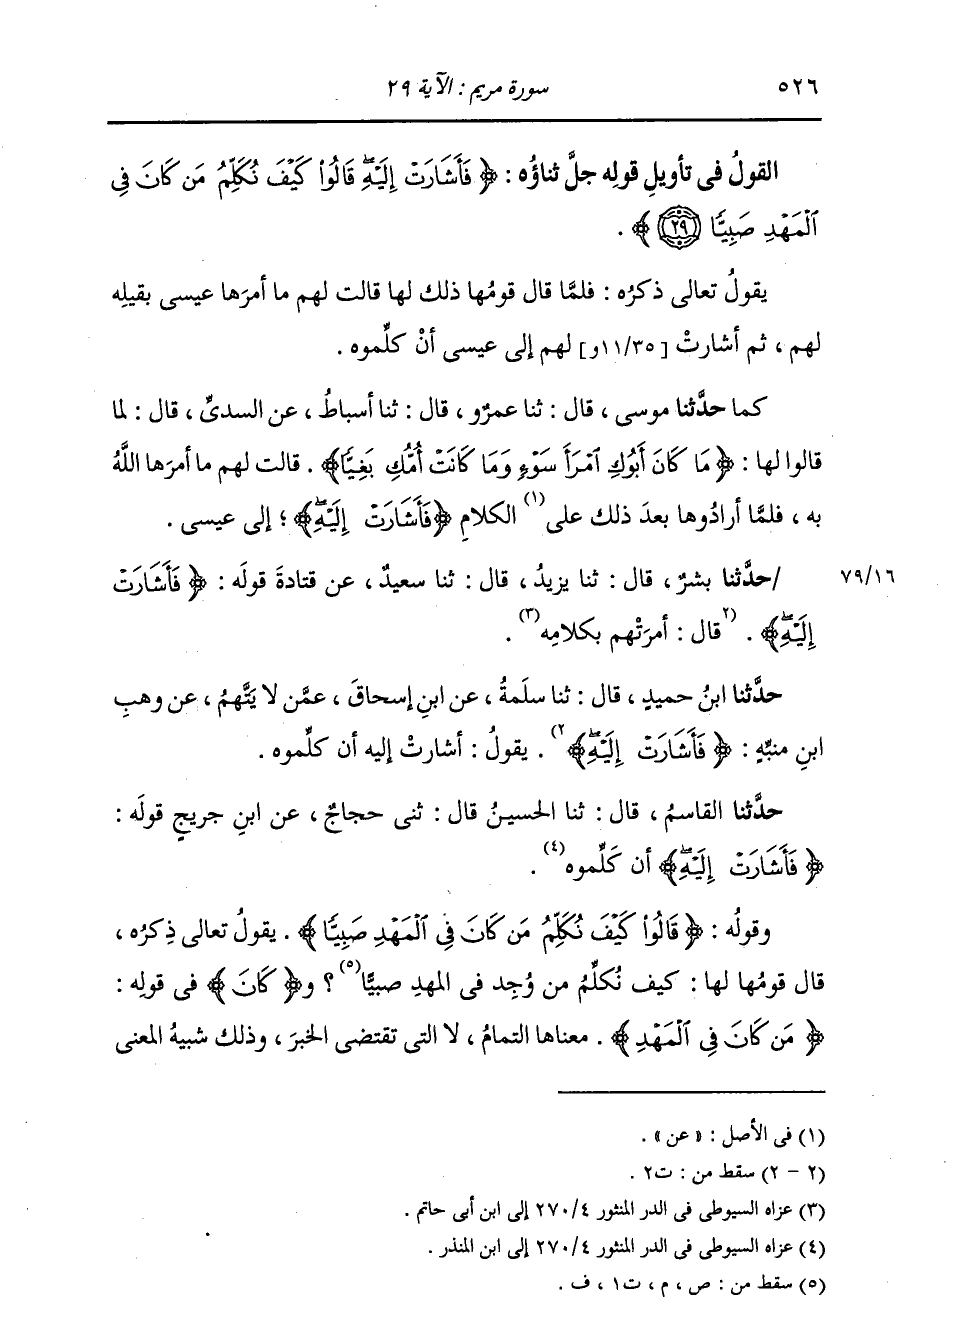 ٥٢٦ سورة مريم : الآية ٢٩
القولُ فى تأويلِ قولِه جلَّ ثناؤُه : ﴿ فَأَشَارَتْ إِلَيْهِ ۖ قَالُوا۟ كَيْفَ نُكَلِّمُ مَن كَانَ فِى
ٱلْمَهْدِ صَبِيًّا ٢٩ ﴾ .
يقولُ تعالى ذكرُه : فلمَّا قال قومُها ذلك لها قالت لهم ما أمرَها عيسى بقيلِه
لهم ، ثم أشارتْ [١١/٣٥و] لهم إلى عيسى أنْ كلِّموه .
كما حدَّثنا موسى ، قال : ثنا عمرٌو ، قال : ثنا أسباطُ ، عن السدىِّ ، قال : لما
قالوا لها : ﴿ مَا كَانَ أَبُوكِ ٱمْرَأَ سَوْءٍ وَمَا كَانَتْ أُمُّكِ بَغِيًّا﴾ . قالت لهم ما أمرَها اللَّهُ
به ، فلمَّا أرادُوها بعدَ ذلك على(١) الكلامِ ﴿فَأَشَارَتْ إِلَيْهِ ۖ﴾ ؛ إلى عيسى .
/حدَّثنا بشرٌ ، قال : ثنا يزيدُ ، قال : ثنا سعيدٌ ، عن قتادةَ قولَه : ﴿ فَأَشَارَتْ ٧٩/١٦
إِلَيْهِ ۖ﴾ . (٢قال : أمرَتْهم بكلامِه(٣) .
حدَّثنا ابنُ حميدٍ ، قال : ثنا سلَمةُ ، عن ابنِ إسحاقَ ، عمَّن لا يَتَّهمُ ، عن وهبِ
ابنِ منبِّهٍ : ﴿ فَأَشَارَتْ إِلَيْهِ ۖ﴾٢) . يقولُ : أشارتْ إليه أن كلِّموه .
حدَّثنا القاسمُ ، قال : ثنا الحسينُ قال : ثنى حجاجٌ ، عن ابنِ جريجٍ قولَه :
﴿ فَأَشَارَتْ إِلَيْهِ ۖ﴾ أن كَلِّموه(٤) .
وقولُه : ﴿ قَالُوا۟ كَيْفَ نُكَلِّمُ مَن كَانَ فِى ٱلْمَهْدِ صَبِيًّا ﴾ . يقولُ تعالى ذِكرُه ،
قال قومُها لها : كيف نُكلِّمُ من وُجِد فى المهدِ صبيًّا(٥) ؟ و﴿ كَانَ ﴾ فى قولِه :
﴿ مَن كَانَ فِى ٱلْمَهْدِ ﴾ . معناها التمامُ ، لا التى تقتضى الخبرَ ، وذلك شبيهُ المعنى
(١) فى الأصل : « عن » .
(٢ - ٢) سقط من : ت٢ .
(٣) عزاه السيوطى فى الدر المنثور ٢٧٠/٤ إلى ابن أبى حاتم .
(٤) عزاه السيوطى فى الدر المنثور ٢٧٠/٤ إلى ابن المنذر .
(٥) سقط من : ص ، م ، ت١ ، ف .